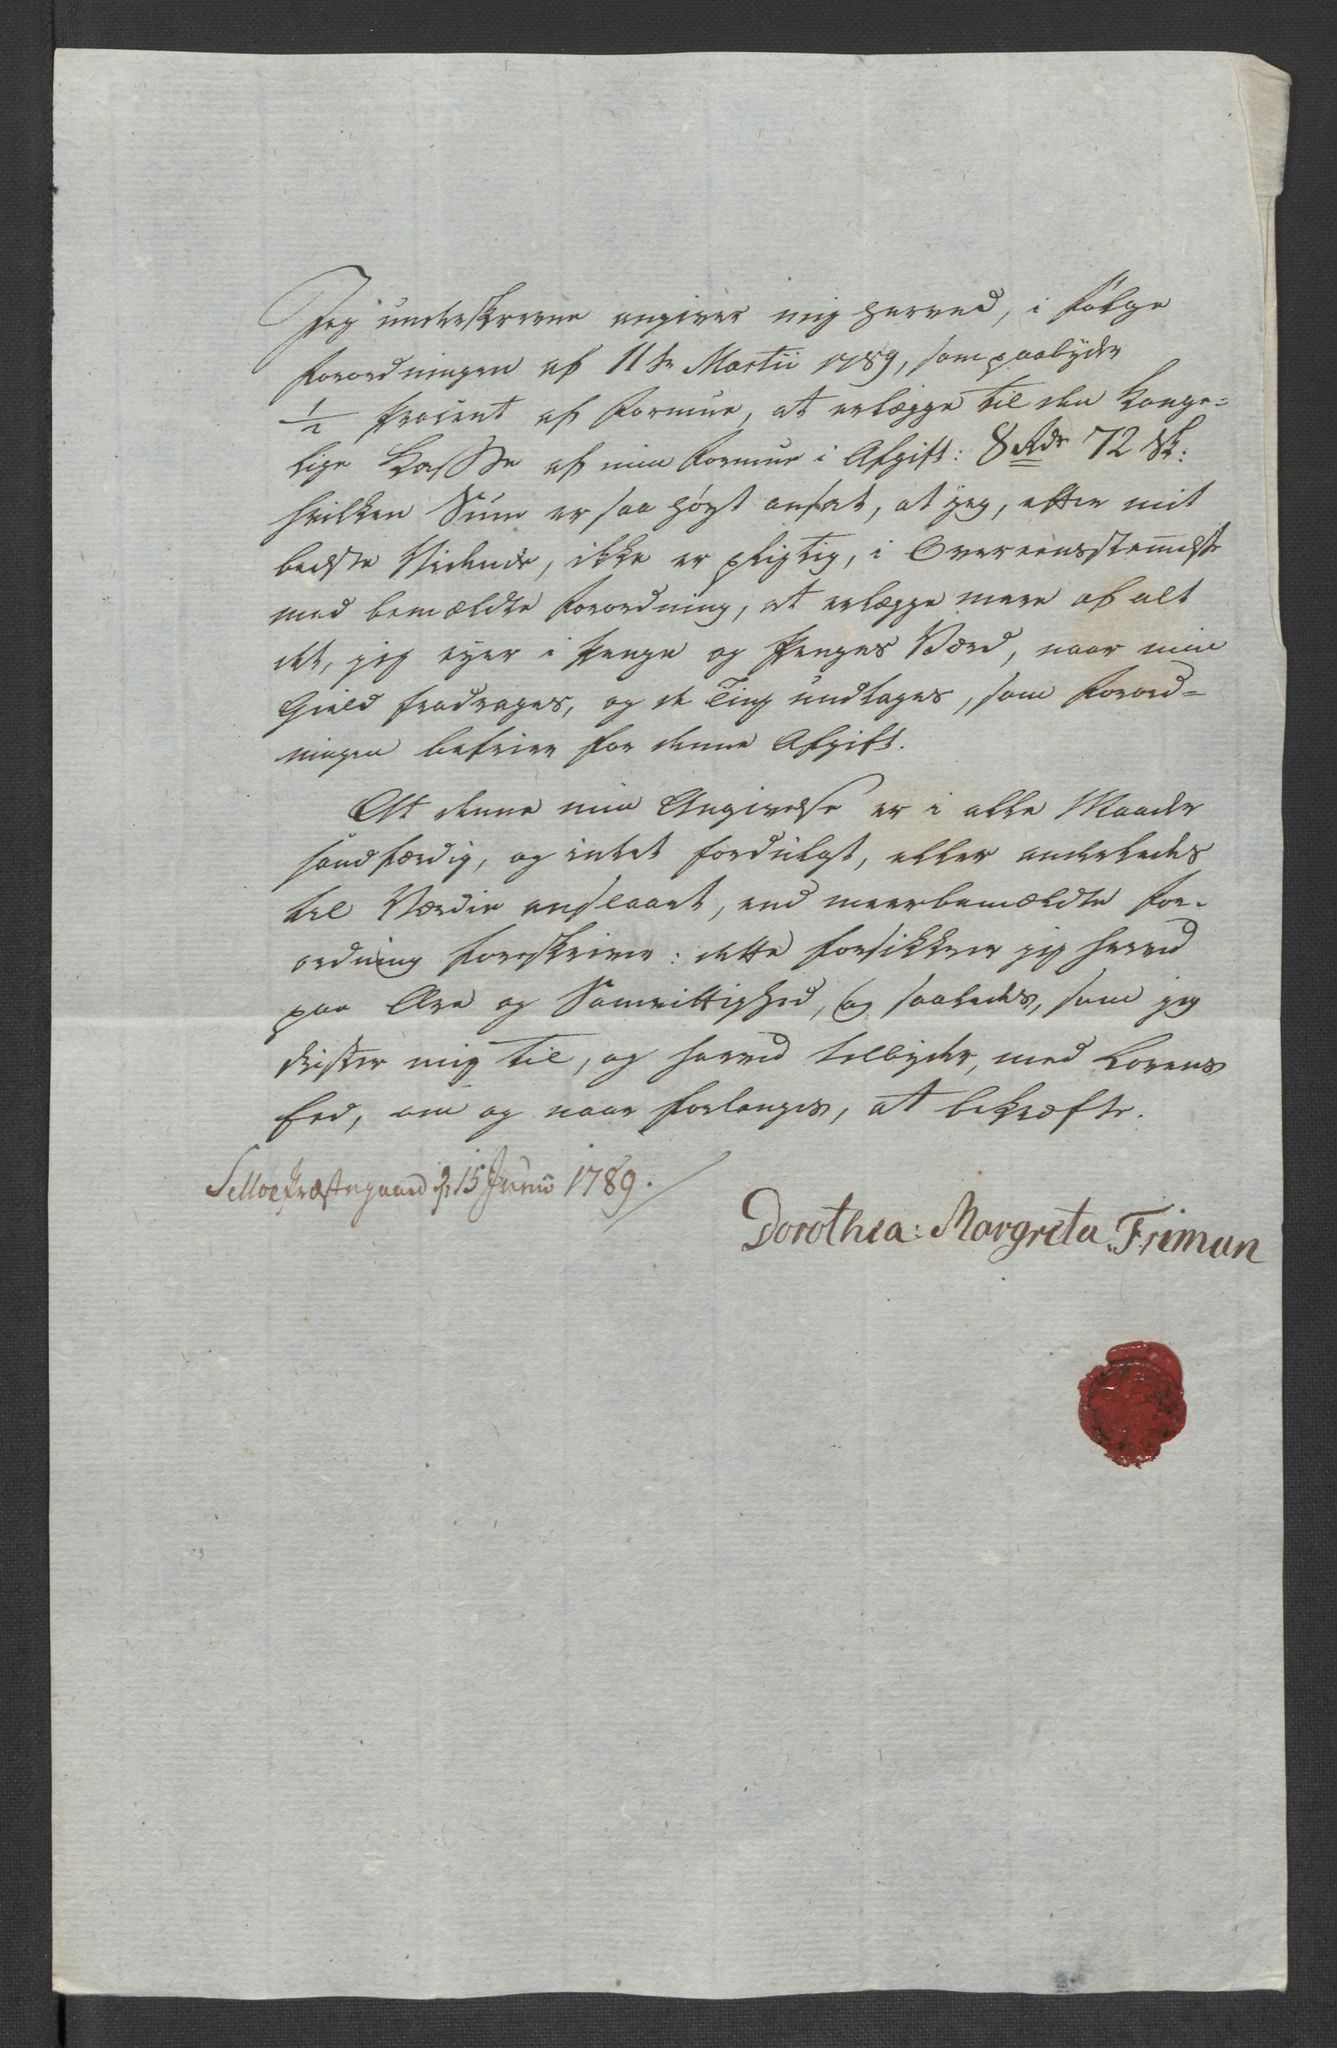 Jeg underskrevne angiver mig herved, i følge
Forordningen af 11te Martii 1789, som paabyder
1/2 Procent af Formue, at erlægge til den Konge=
lige Kasse af min Formue i Afgift: 8 Rdr 72 sk:
hvilken Sum er saa høyt ansat, at jeg, efter mit
bedste Vidende, ikke er pligtig, i Overeensstemelse
med bemældte Forordning, at erlægge mere af alt
det, jeg eyer i Penge og Penges Værd, naar min
Gield fradrages, og de Ting undtages, som Forord=
ningen befrier for denne Afgift.
At denne min Angivelse er i alle Maader
sandfærdig, og intet fordulgt, eller anderledes
til Værdie anslaaet, end meerbemældte For-
ordning foreskriver: dette forsikkrer jeg herved
paa Ære og Samvittighed, og saaledes, som jeg
trøster mig til, og herved tilbyder, med Lovens
Eed, om og naar forlanges, at bekræfte.
Selloe Præstegaard d 15 Junii 1789.
Dorothea: Margreta Friman